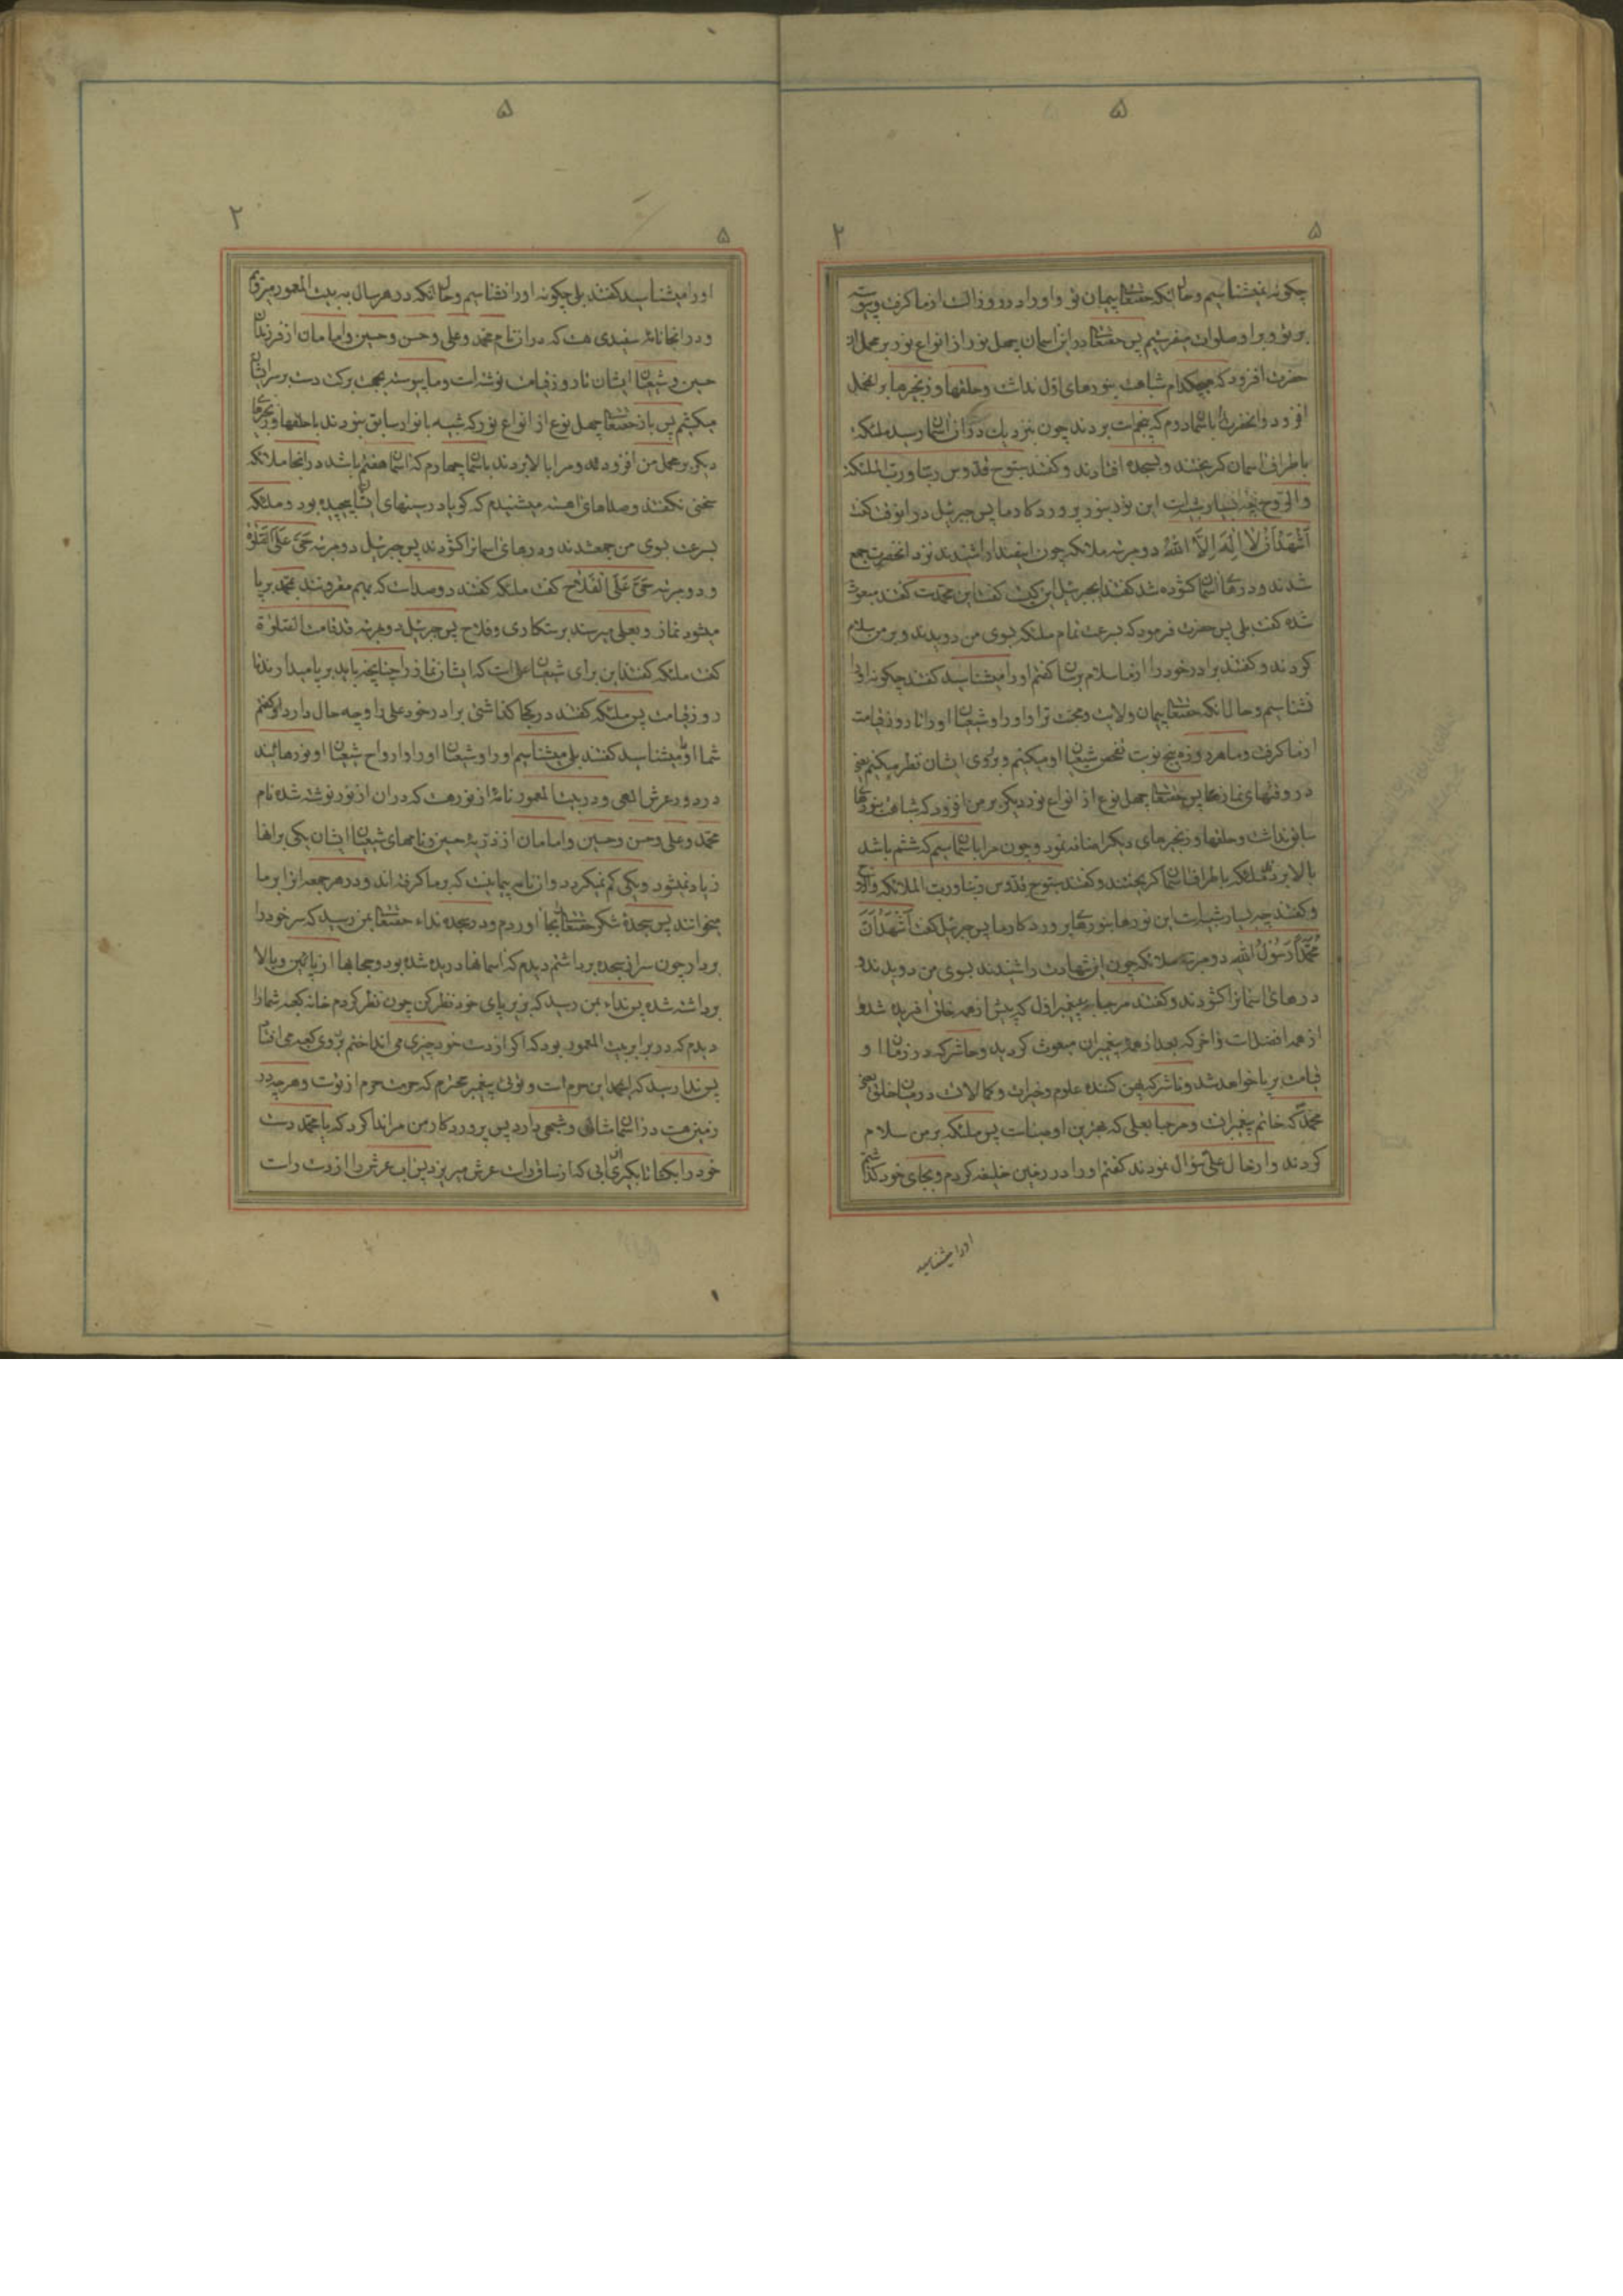 ۵
۲
۵
چگونه نمیشناسیم و حال آنکه حقتعالی پیمان تو و او را در روز الست از ما گرفت و پیوسته
بر تو و بر او صلوات میفرستیم پس حقتعالی در این آسمان چهل نور از انواع نور بر محمل آن
حضرت افزود که هیچکدام شباهت بنورهای اول نداشت و حلقها و زنجیرها بر محمل
افزود و آنحضرت را باسمان دوم که پنجم است بردند چون بنزدیک در آن آسمان رسید ملئکه
باطراف آسمان گریختند و بسجده افتادند و گفتند سبوح قدوس ربنا و رب الملئکة
والروح چه بسیار شبیه است این نور بنور پروردگار ما پس جبرئیل در آنوقت گفت
أَشْهَدُ أَنْ لَا إِلَهَ إِلَّا اللهُ دو مرتبه ملائکه چون این ندا را شنیدند نزد آنحضرت جمع
شدند و درهای آسمان گشوده شد گفتند ایجبرئیل این کیست گفت این محمدست گفتند مبعوث
شده گفت بلی پس حضرت فرمود که بسرعت تمام ملئکه بسوی من دویدند و بر من سلام
کردند و گفتند برادر خود را از ما سلام برسان گفتم او را میشناسید گفتند چگونه او را
نشناسیم و حال آنکه حقتعالی پیمان ولایت و محبت ترا و او را و شیعیان او را تا روز قیامت
از ما گرفت و ما هر روزه پنج نوبت تفحص شیعیان او میکنیم و بروی ایشان نظر میکنیم یعنی
در وقتهای نمازها پس حقتعالی چهل نوع از انواع نور دیگر بر من افزود که شباهت بنورهای
سابق نداشت و حلقها و زنجیرهای دیگر اضافه نمود و چون مرا باسمان سیم که ششم باشد
بالا بردند ملئکه باطراف آسمان گریختند و گفتند سبوح قدوس ربنا و رب الملائکه والروح
و گفتند چه بسیار شبیه است این نورها بنورهای پروردگار ما پس جبرئیل گفت أَشْهَدُ أَنَّ
مُحَمَّداً رَسُولُ اللهِ دو مرتبه ملائکه چون این شهادت را شنیدند بسوی من دویدند و
درهای آسمانرا گشودند و گفتند مرحبا به پیغمبر اول که پیش از همه خلق آفریده شد و
از همه افضلست و آخر که بعد از همه پیغمبران مبعوث گردید و حاشر که در زمان او
قیامت برپا خواهد شد و ناشر که پهن کننده علوم و خیرات و کمالات در میان خلق یعنی
محمد که خاتم پیغمبران و مرحبا بعلی که بهترین اوصیاست پس ملئکه بر من سلام
کردند و از حال علی سؤال نمودند گفتم او را در زمین خلیفه کردم و بجای خود گذاشتم گفتم
او را میشناسید
۵
۲
۵
او را میشناسید گفتند بلی چگونه او را نشناسیم و حال آنکه در هر سال به بیت المعمور میرویم
و در آنجا نامه سفیدی هست که در آن نام محمد و علی و حسن و حسین و امامان از فرزندان
حسین و شیعیان ایشان تا روز قیامت نوشته است و ما پیوسته بجهت برکت دست بر سر ایشان
میکشیم پس باز حقتعالی چهل نوع از انواع نور که شبیه بانوار سابق نبودند با حلقها و زنجیرهای
دیگر بر محمل من افزودند و مرا بالا بردند باسمان چهارم که آسمان هفتم باشد در آنجا ملائکه
سخنی نگفتند و صداهای آهسته میشنیدم که گویا در سینهای ایشان پیچیده بود و ملئکه
بسرعت بسوی من جمع شدند و درهای آسمانرا گشودند پس جبرئیل دو مرتبه حَیَّ عَلَی الصَّلوة
و دو مرتبه حَیَّ عَلَی الفَلَاحِ گفت ملئکه گفتند دو صداست که بهم مقرونند بمحمد برپا
میشود نماز و بعلی میرسند برستگاری و فلاح پس جبرئیل دو مرتبه قد قامت الصلوة
گفت ملئکه گفتند این برای شیعیان علی است که ایشان نماز را چنانچه باید برپا میدارند تا
روز قیامت پس ملئکه گفتند در کجا گذاشتی برادر خود علی را و چه حال دارد گفتم
شما او را میشناسید گفتند بلی میشناسیم او را و شیعیان او را و ارواح شیعیان او نورهائیند
در دور عرش الهی و در بیت المعمور نامه از نور هست که در آن از نور نوشته شده نام
محمد و علی و حسن و حسین و امامان از ذریه حسین و نامهای شیعیان ایشان یکی بر آنها
زیاد نمیشود و یکی کم نمیگردد و آن نامه پیمانیست که بر ما گرفته اند و در هر جمعه آنرا بر ما
میخوانند پس سجده شکر حقتعالی بجا آوردم و در سجده نداء حقتعالی بمن رسید که سر خود را
بردار چون سر از سجده برداشتم دیدم که آسمانها دریده شده بود و حجابها از پائین و بالا
برداشته شده پس نداء بمن رسید که بزیر پای خود نظر کن چون نظر کردم خانه کعبه شما را
دیدم که در برابر بیت المعمور بود که اگر از دست خود چیزی می انداختم بر روی کعبه می افتاد
پس ندا رسید که ایمحمد این حرم است و توئی پیغمبر محترم که حرمت حرم از تست و هر چه در
زمین هست در آسمان مثالی و شبحی دارد پس پروردگار من مرا ندا کرد که یا محمد دست
خود را بگشا تا بگیری آبی که از ساق راست عرش میریزد پس آب عرش را از دست راست